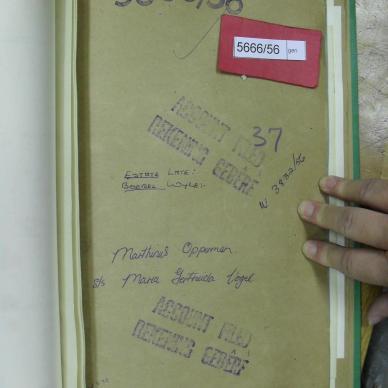 5666/56
5666/56 gen
ACCOUNT FILED
REKENING GEDÊRE
37
ESTATE LATE:
BOEDEL WYLE:
W 3832/56
Marthinus Opperman
s/s Maria Gertruida Vogel
ACCOUNT FILED
REKENING GEDÊRE